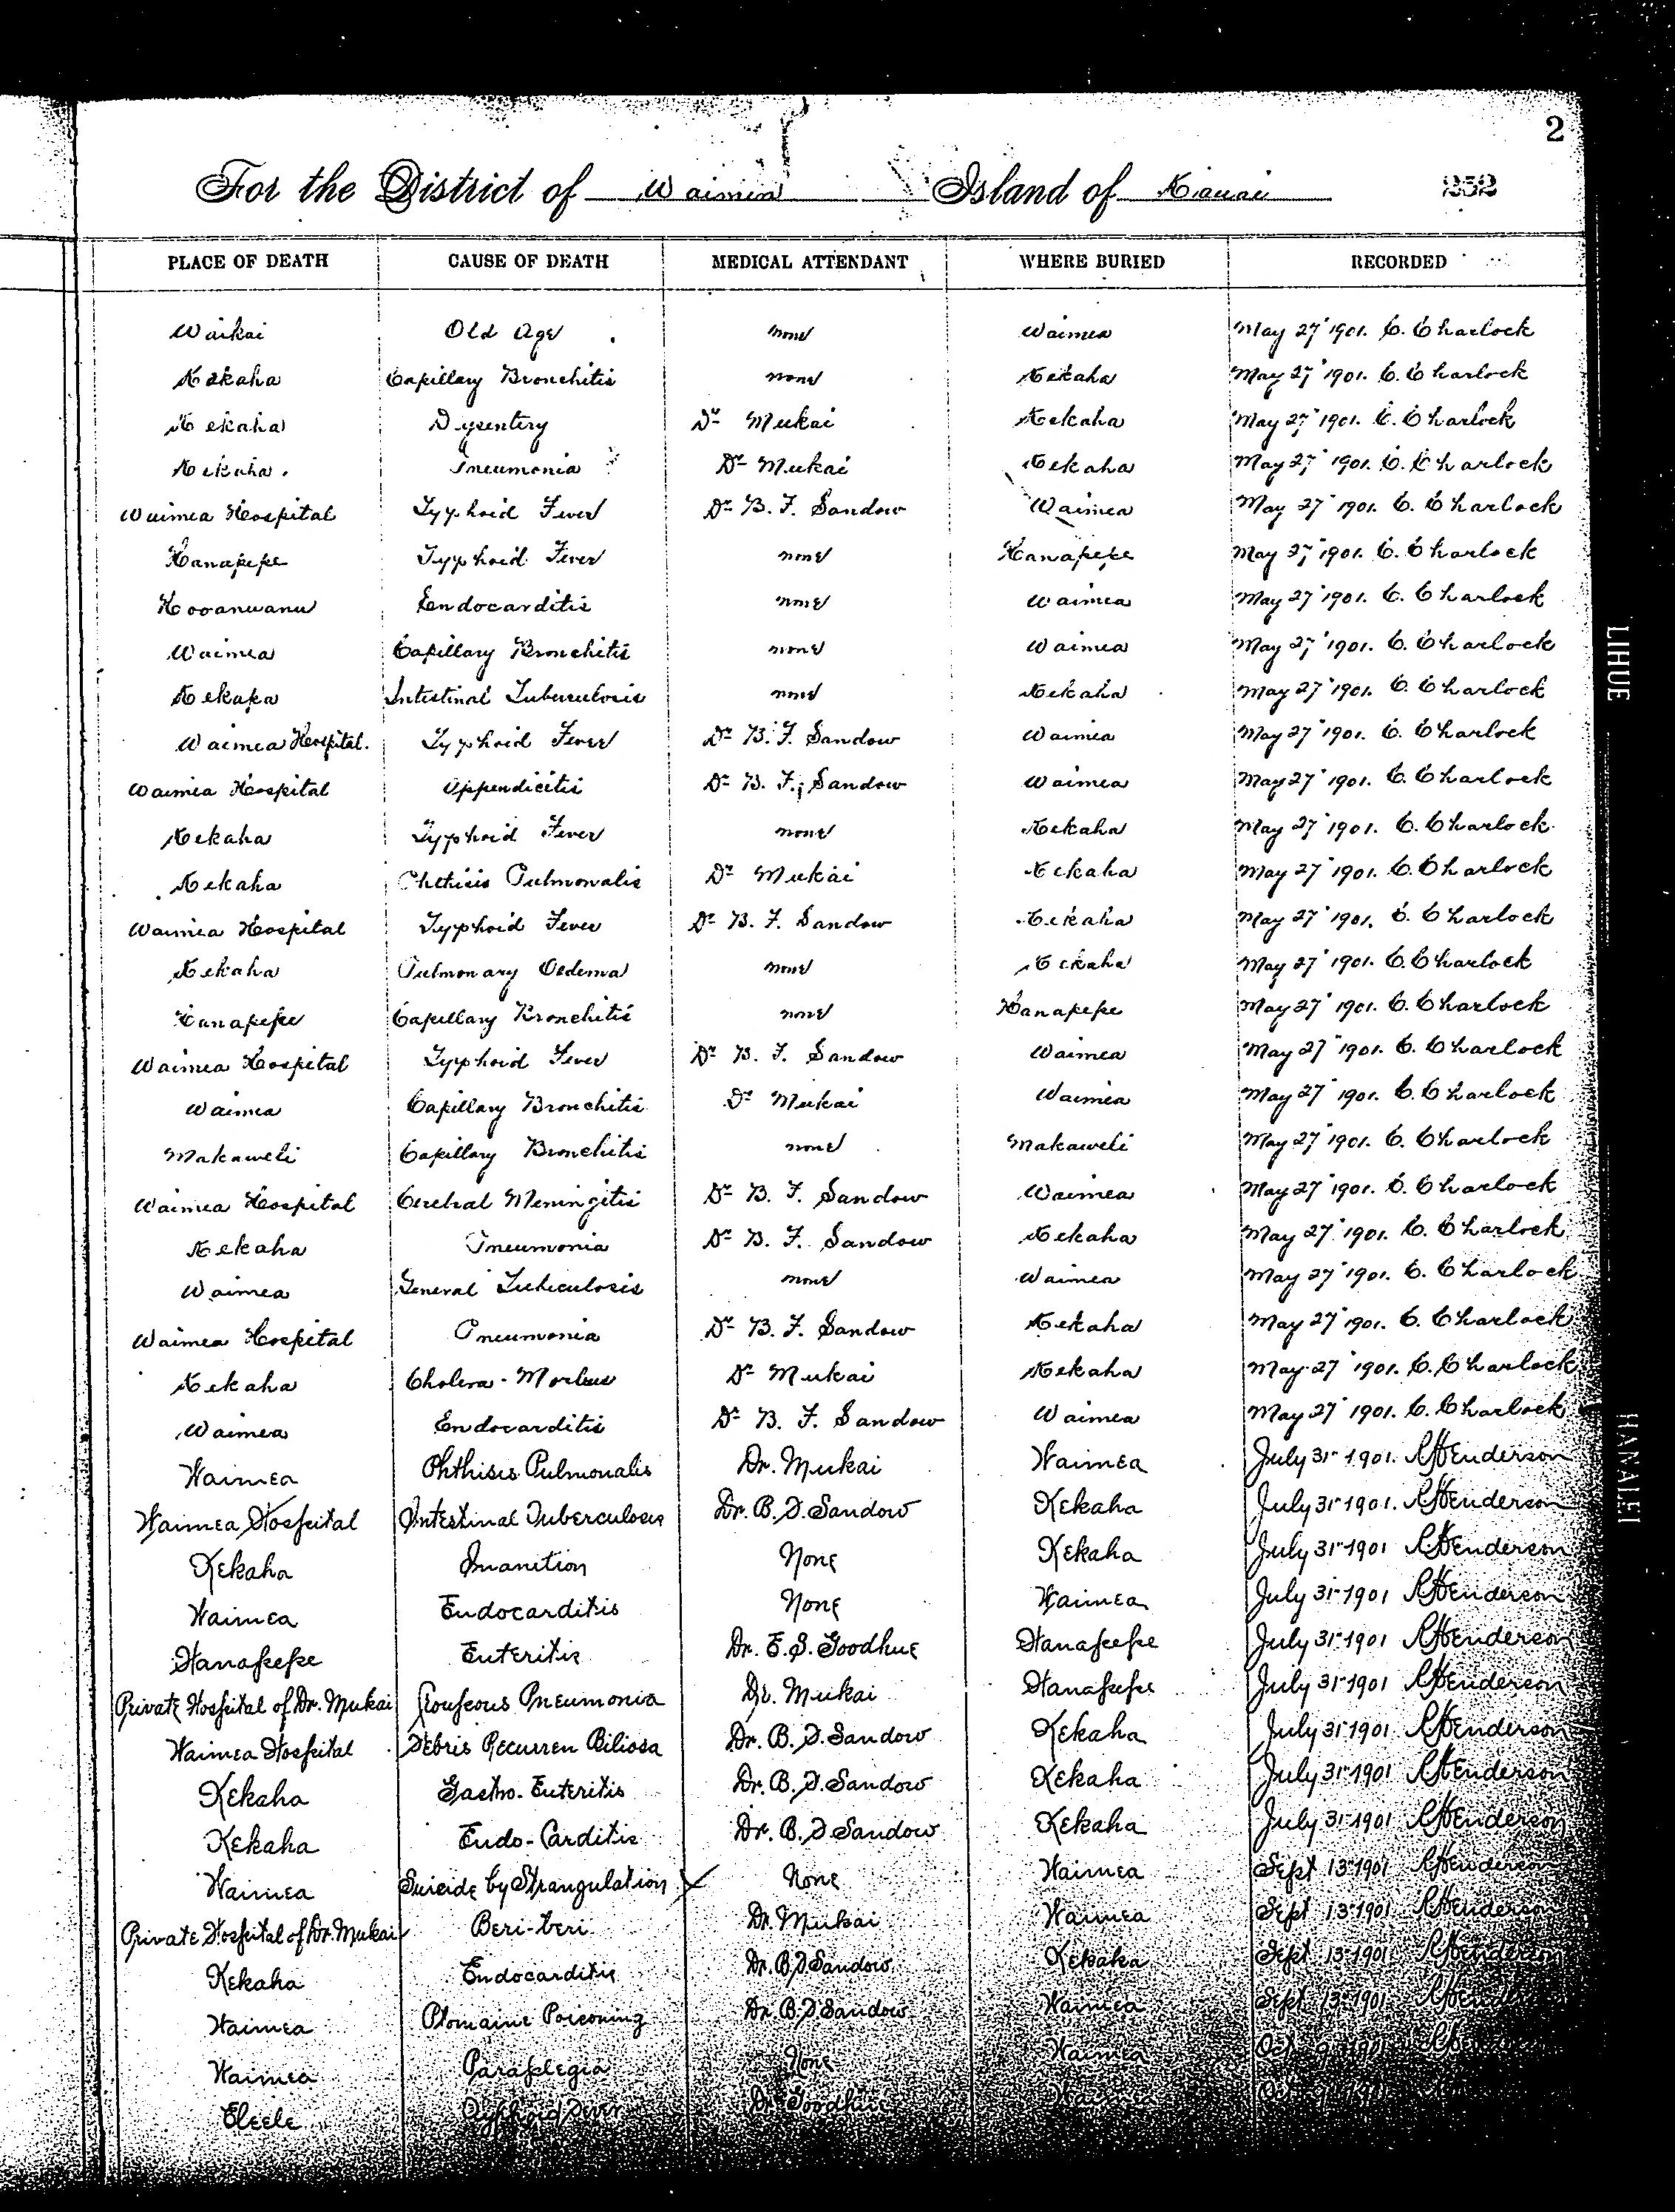 2
For the District of Waimea Island of Kauai 252
PLACE OF DEATH CAUSE OF DEATH MEDICAL ATTENDANT WHERE BURIED RECORDED
Waikai Old Age none Waimea May 27" 1901. C. Charlock
Kekaha Capillary Bronchitis none Kekaha May 27" 1901. C. Charlock
Kekaha Dysentery Dr Mukai Kekaha May 27" 1901. C. Charlock
Kekaha. Pneumonia Dr Mukai Kekaha May 27" 1901. C. Charlock
Waimea Hospital Typhoid Fever Dr B. F. Sandow Waimea May 27" 1901. C. Charlock
Hanapepe Typhoid Fever none Hanapepe May 27" 1901. C. Charlock
Kooanuanu Endocarditis none Waimea May 27" 1901. C. Charlock
Waimea Capillary Bronchitis none Waimea May 27" 1901. C. Charlock
Kekaha Intestinal Tuberculosis none Kekaha May 27" 1901. C. Charlock
Waimea Hospital. Typhoid Fever Dr B. F. Sandow Waimea May 27" 1901. C. Charlock
Waimea Hospital Appendicitis Dr B. F. Sandow Waimea May 27" 1901. C. Charlock
Kekaha Typhoid Fever none Kekaha May 27" 1901. C. Charlock
Kekaha Phthisis Pulmonalis Dr Mukai Kekaha May 27" 1901. C. Charlock
Waimea Hospital Typhoid Fever Dr B. F. Sandow Kekaha May 27" 1901. C. Charlock
Kekaha Pulmonary Oedema none Kekaha May 27" 1901. C. Charlock
Hanapepe Capillary Bronchitis none Hanapepe May 27" 1901. C. Charlock
Waimea Hospital Typhoid Fever Dr B. F. Sandow Waimea May 27" 1901. C. Charlock
Waimea Capillary Bronchitis Dr Mukai Waimea May 27" 1901. C. Charlock
Makaweli Capillary Bronchitis none Makaweli May 27" 1901. C. Charlock
Waimea Hospital Cerebral Meningitis Dr B. F. Sandow Waimea May 27" 1901. C. Charlock
Kekaha Pneumonia Dr B. F. Sandow Kekaha May 27" 1901. C. Charlock
Waimea General Tuberculosis none Waimea May 27" 1901. C. Charlock
Waimea Hospital Pneumonia Dr B. F. Sandow Kekaha May 27" 1901. C. Charlock
Kekaha Cholera-Morbus Dr Mukai Kekaha May 27" 1901. C. Charlock
Waimea Endocarditis Dr B. F. Sandow Waimea May 27" 1901. C. Charlock
Waimea Phthisis Pulmonalis Dr. Mukai Waimea July 31st 1901. Henderson
Waimea Hospital Intestinal Tuberculosis Dr. B. F. Sandow Kekaha July 31st 1901. Henderson
Kekaha Inanition None Kekaha July 31st 1901 Henderson
Waimea Endocarditis None Waimea July 31st 1901 Henderson
Hanapepe Enteritis Dr. E. S. Goodhue Hanapepe July 31st 1901 Henderson
Private Hospital of Dr. Mukai Croupous Pneumonia Dr. Mukai Hanapepe July 31st 1901 Henderson
Waimea Hospital Febris Recurren Biliosa Dr. B. F. Sandow Kekaha July 31st 1901 Henderson
Kekaha Gastro-Enteritis Dr. B. F. Sandow Kekaha July 31st 1901 Henderson
Kekaha Endo-Carditis Dr. B. F. Sandow Kekaha July 31st 1901 Henderson
Waimea Suicide by Strangulation None Waimea Sept 13th 1901 Henderson
Private Hospital of Dr. Mukai Beri-beri Dr. Mukai Waimea Sept 13th 1901 Henderson
Kekaha Endocarditis Dr. B. F. Sandow Kekaha Sept 13th 1901 Henderson
Waimea Ptomaine Poisoning Dr. B. F. Sandow Waimea Sept 13th 1901
Waimea Paraplegia None Waimea Oct 9th 1901
Eleele Typhoid Fever Dr Goodhue Waimea Oct 9th 1901
LIHUE
HANALEI